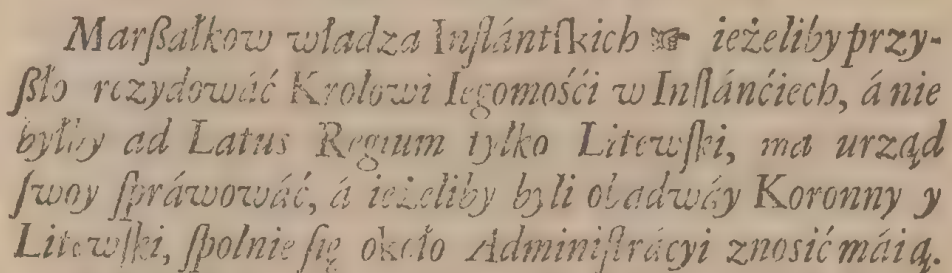 Marſzałkow władza Inflántſkich ☞ ieżeliby przy-
ſzło rezydowáć Krolowi Iegomośći w Inflánćiech, á nie
byłby ad Latus Regium tylko Litewſki, ma urząd
ſwoy ſpráwowáć, á ieżeliby byli obadwáy Koronny y
Litewſki, ſpolnie ſię około Adminiſtrácyi znosić máią.